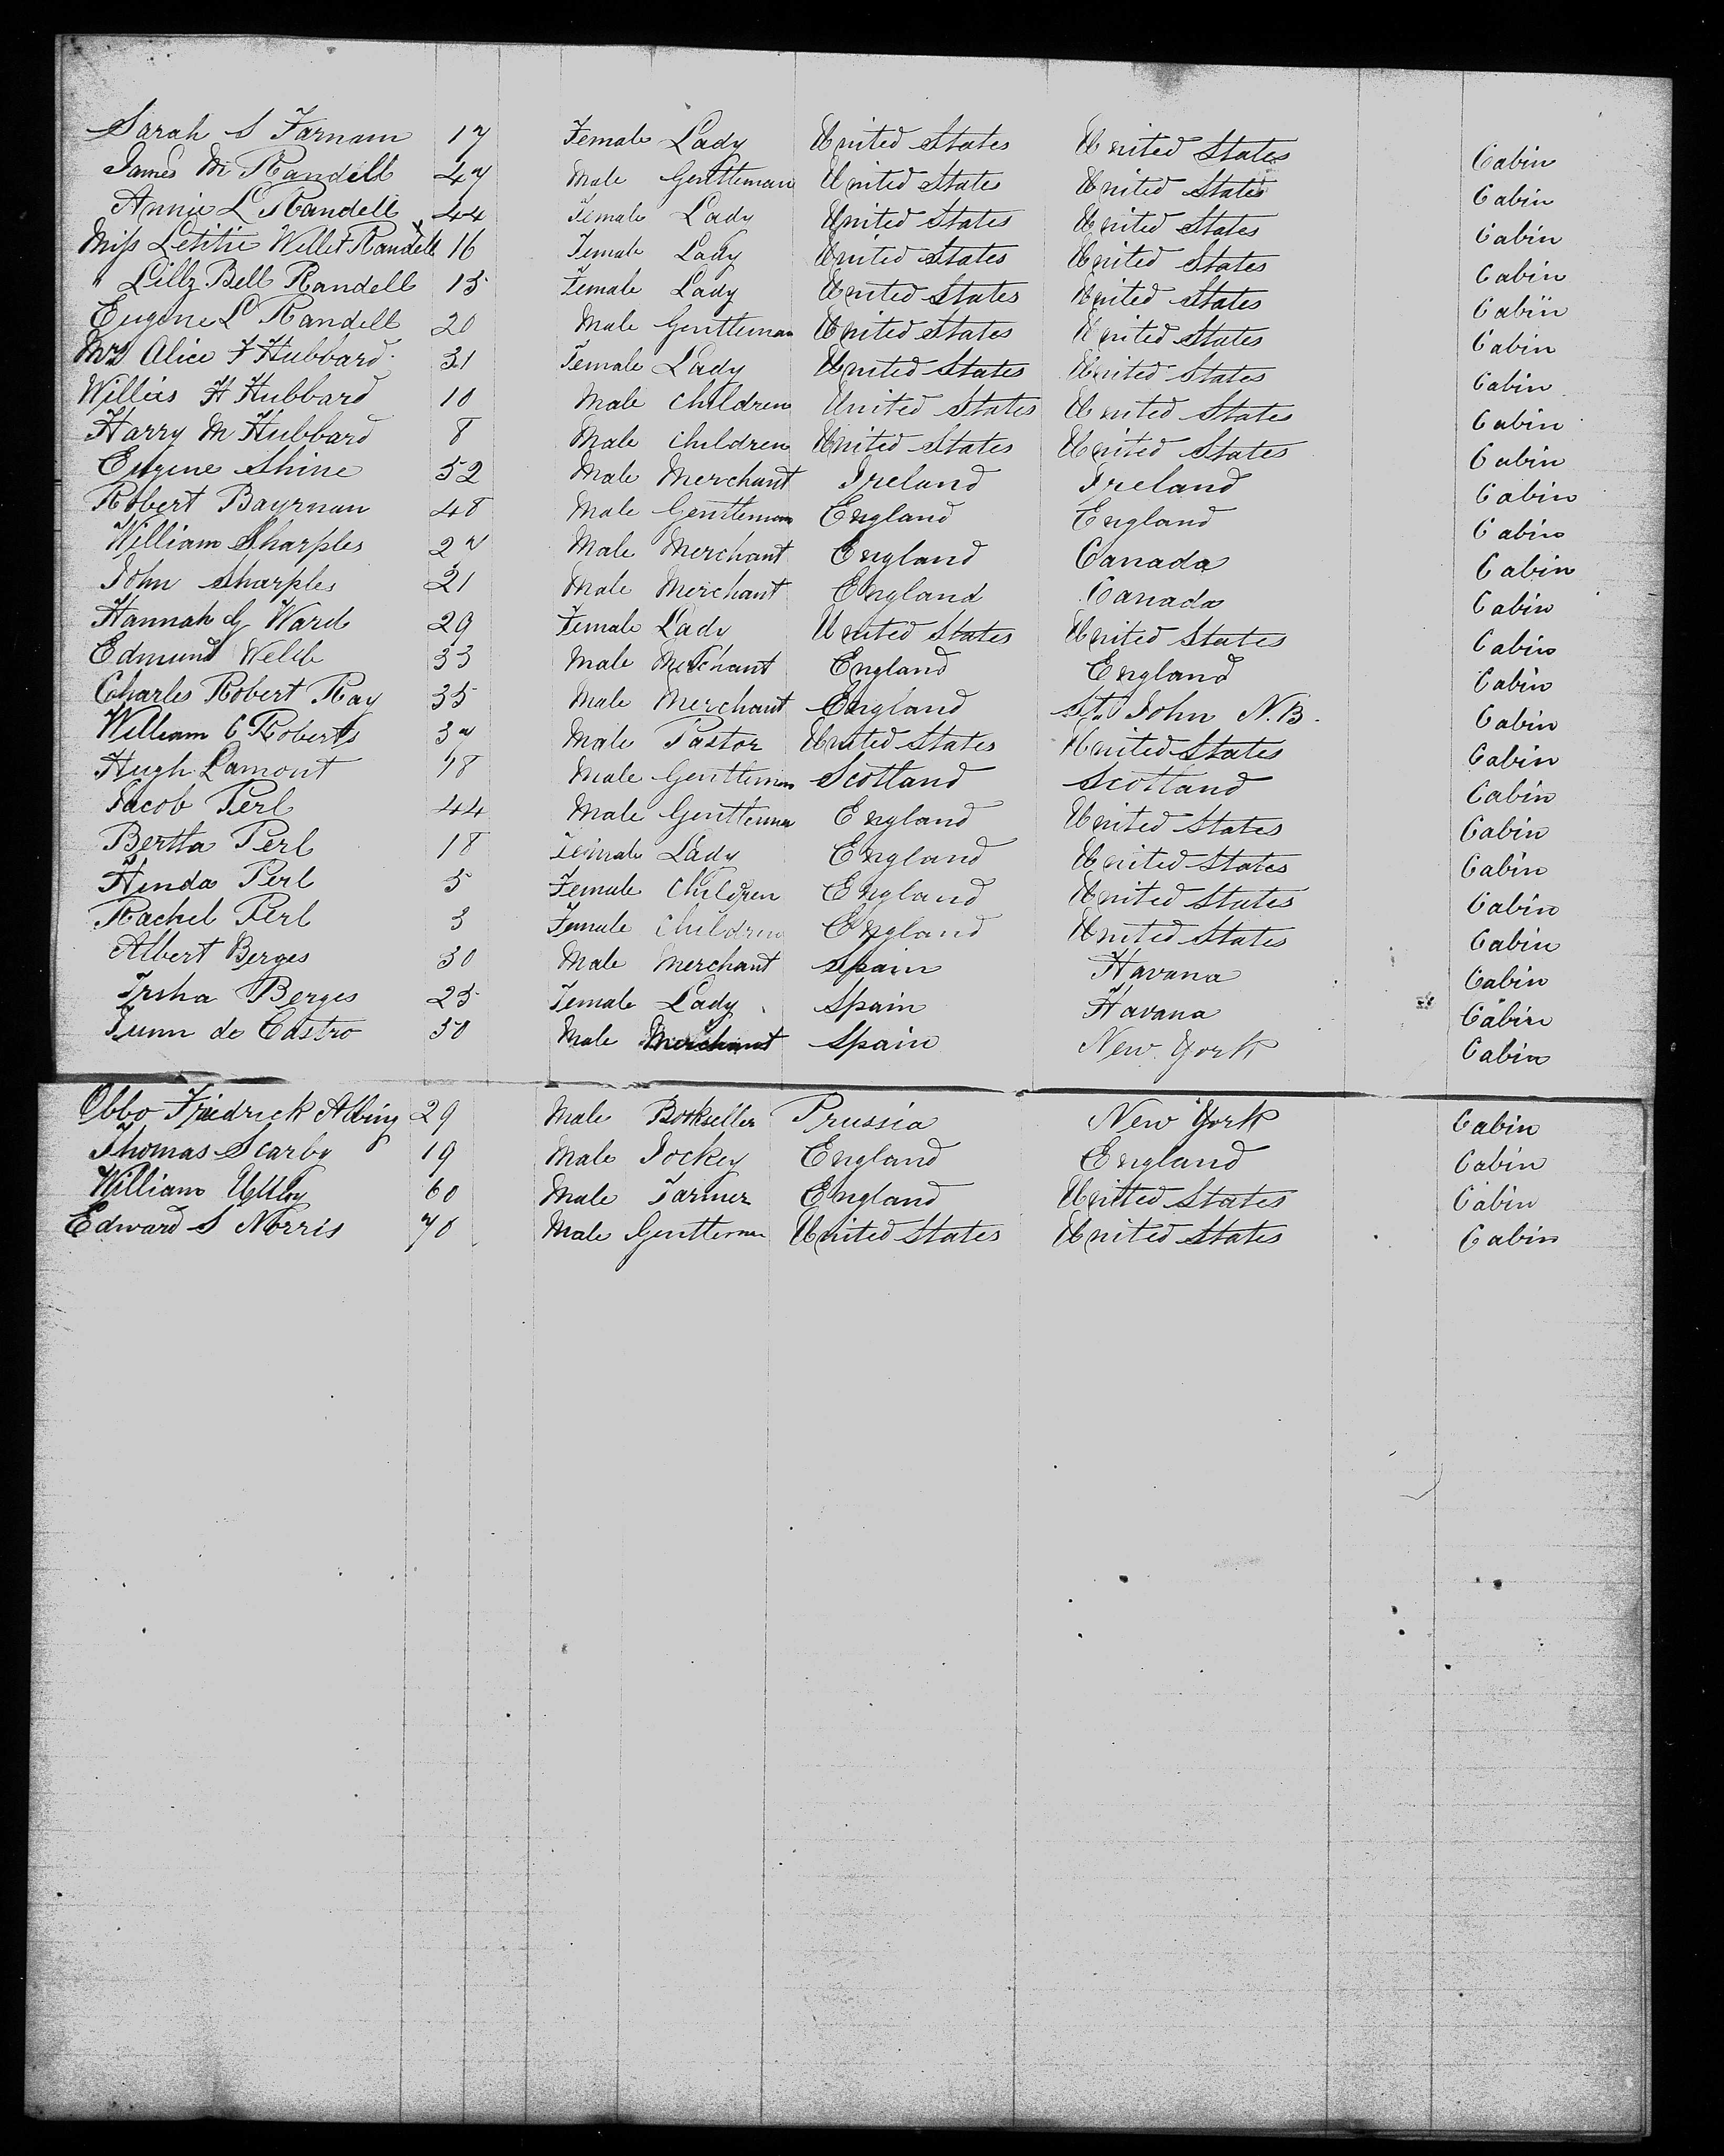 Sarah S Farnam 17 Female Lady United States United States Cabin
James M Randell 47 Male Gentleman United States United States Cabin
Annie L Randell 44 Female Lady United States United States Cabin
Miss Letitie Willet Randell 16 Female Lady United States United States Cabin
" Lilly Bell Randell 15 Female Lady United States United States Cabin
Eugene L Randell 20 Male Gentleman United States United States Cabin
Mrs Alice F Hubbard 31 Female Lady United States United States Cabin
Willis H Hubbard 10 Male Children United States United States Cabin
Harry M Hubbard 8 Male Children United States United States Cabin
Eugene Shine 52 Male Merchant Ireland Ireland Cabin
Robert Bayrnan 48 Male Gentleman England England Cabin
William Sharples 27 Male Merchant England Canada Cabin
John Sharples 21 Male Merchant England Canada Cabin
Hannah G Ward 29 Female Lady United States United States Cabin
Edmund Webb 33 Male Merchant England England Cabin
Charles Robert Ray 35 Male Merchant England St. John N.B. Cabin
William C Roberts 37 Male Pastor United States United States Cabin
Hugh Lamont 48 Male Gentleman Scotland Scotland Cabin
Jacob Perl 44 Male Gentleman England United States Cabin
Bertha Perl 18 Female Lady England United States Cabin
Hinda Perl 5 Female Children England United States Cabin
Rachel Perl 3 Female Children England United States Cabin
Albert Berges 30 Male Merchant Spain Havana Cabin
Berges 25 Female Lady Spain Havana Cabin
de Castro 30 Male Merchant Spain New York Cabin
Obbo Friedrick Albing 29 Male Bookseller Prussia New York Cabin
Thomas Scarby 19 Male Jockey England England Cabin
William Uttley 60 Male Farmer England United States Cabin
Edward S Norris 70 Male Gentleman United States United States Cabin